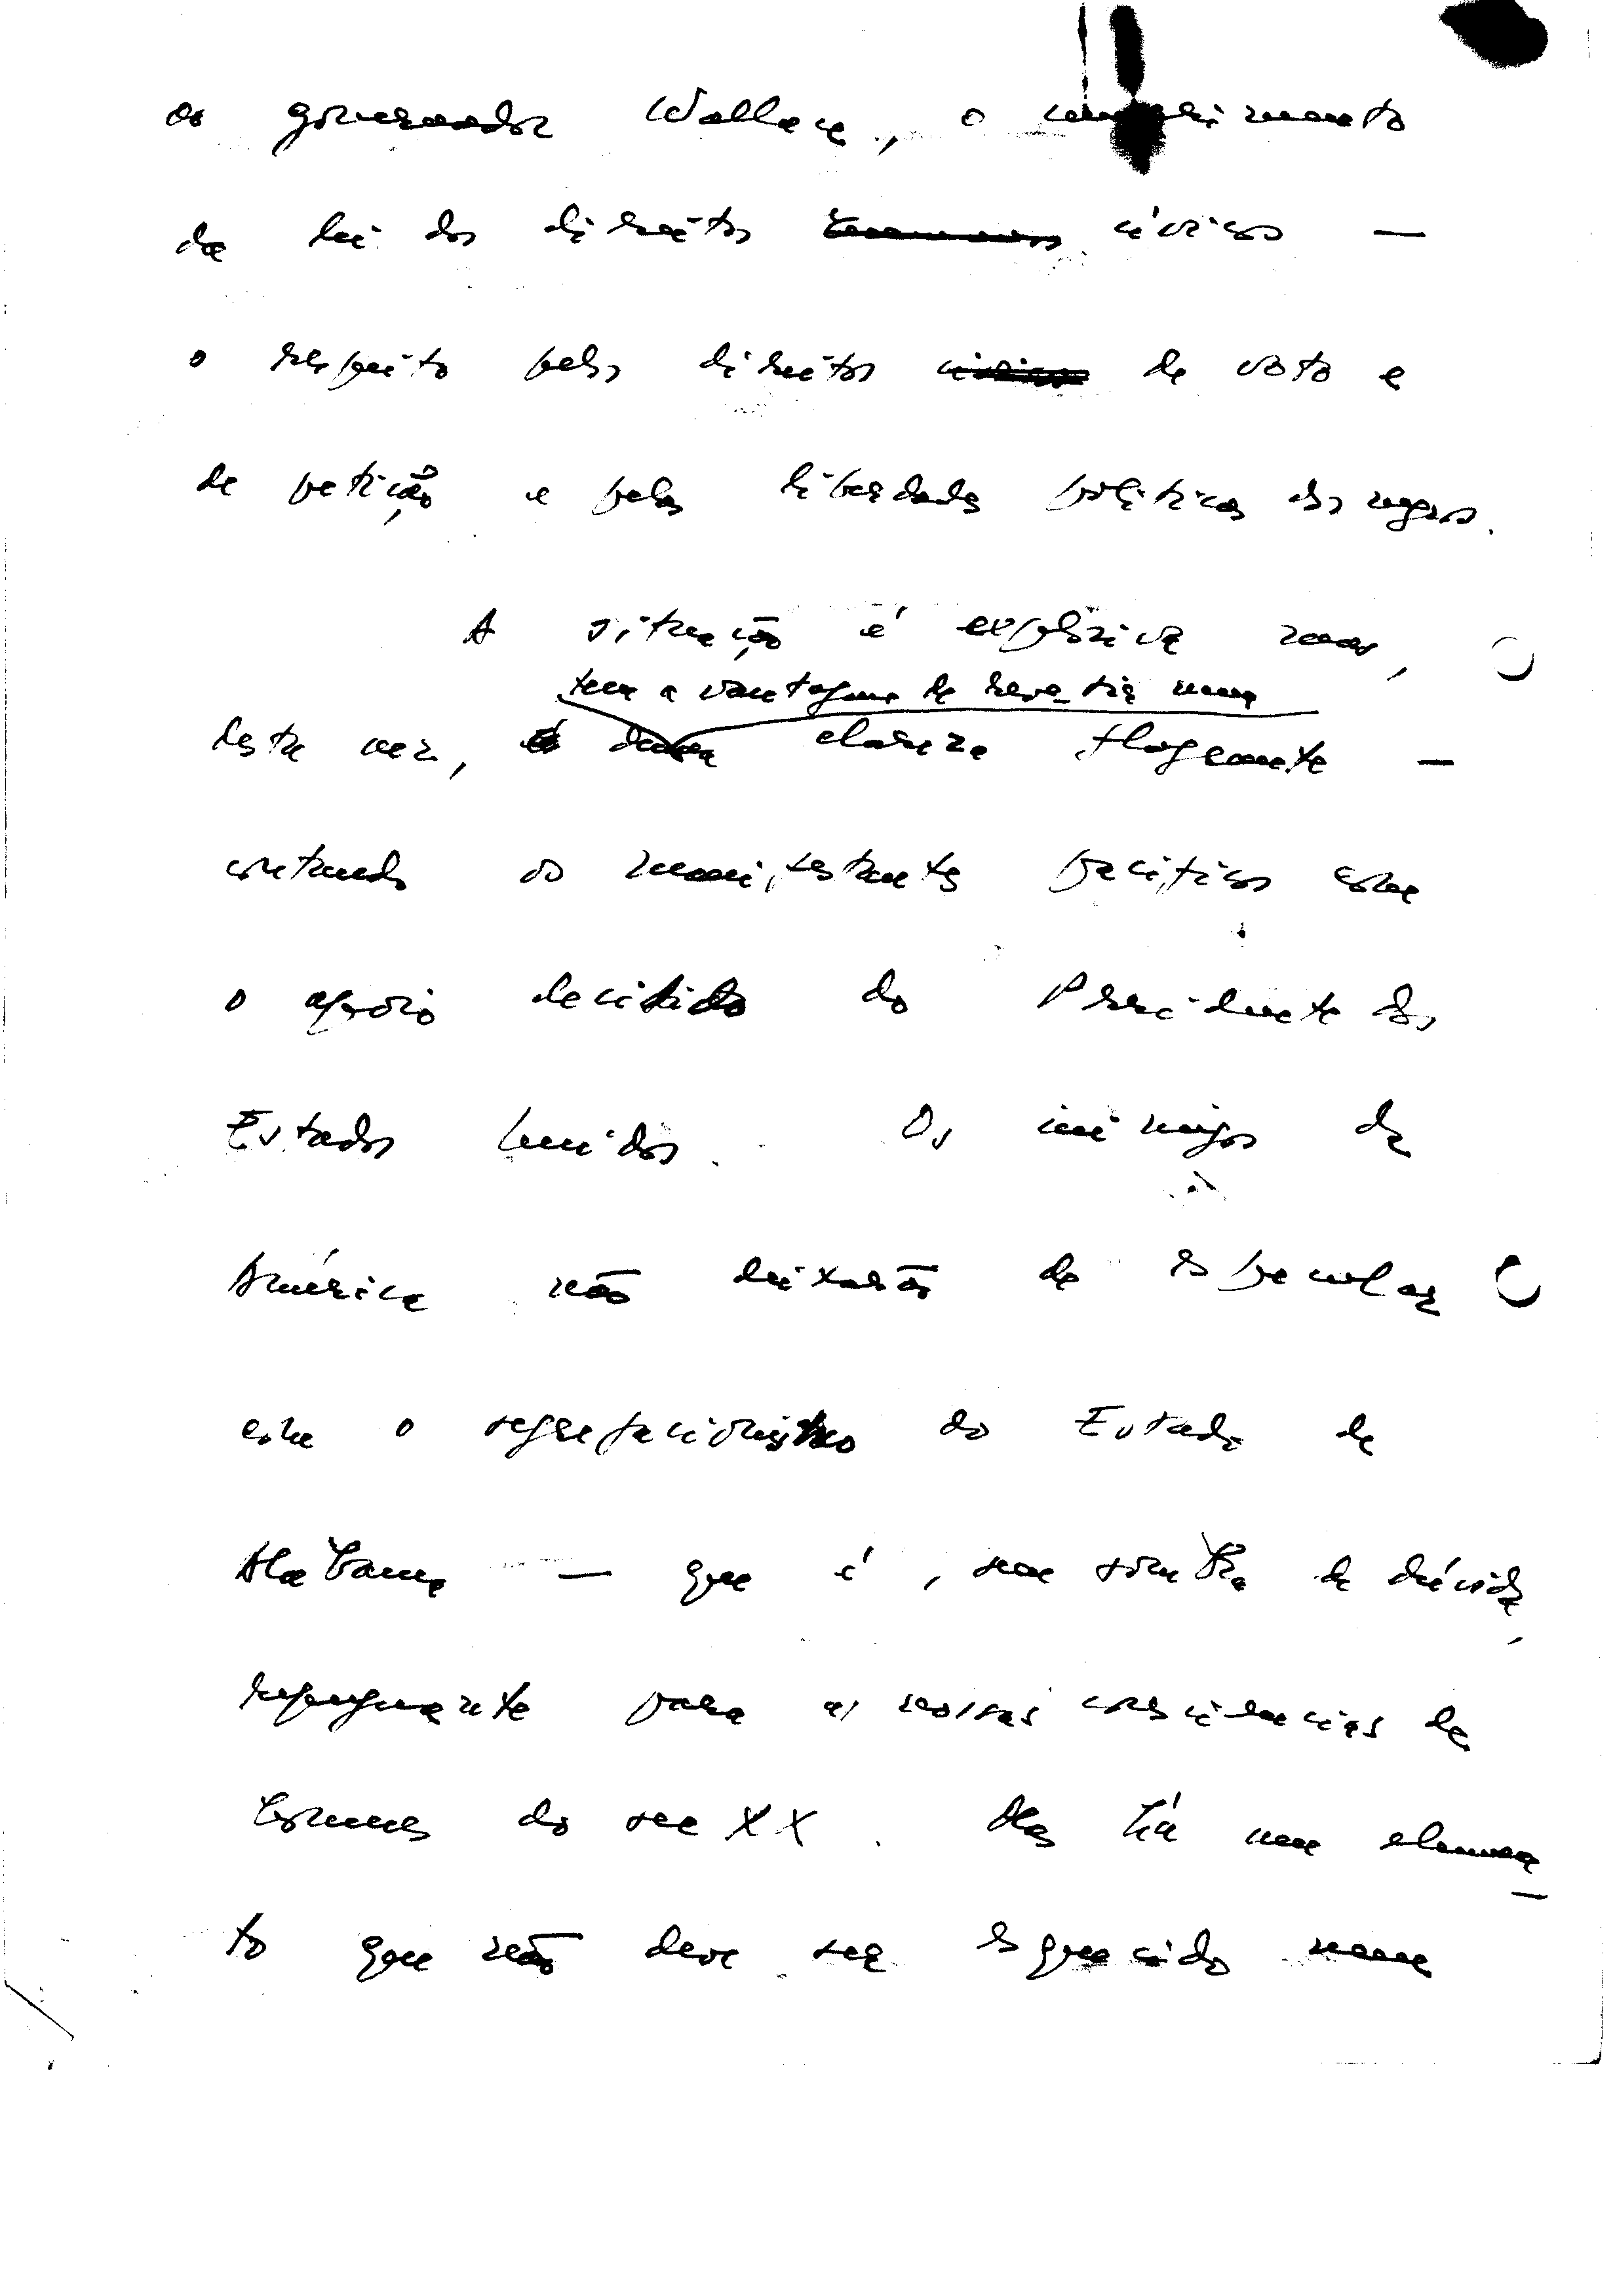 ao governador Wallace, o cumprimento
da lei dos direitos humanos cívicos —
o respeito pelos direitos cívicos de voto e
de petição e pelas liberdades políticas dos negros.
A situação é explosiva mas,
tem a vantagem de revestir uma
desta vez, é duma clareza flagrante —
contando os manifestantes pacíficos com
o apoio decidido do Presidente dos
Estados Unidos. Os inimigos da
América não deixarão de especular
com o segregacionismo do Estado de
Alabama — que é, sem sombra de dúvida,
repugnante para as nossas consciências de
homens do sec XX. Mas há um elemen-
to que não deve ser esquecido nem